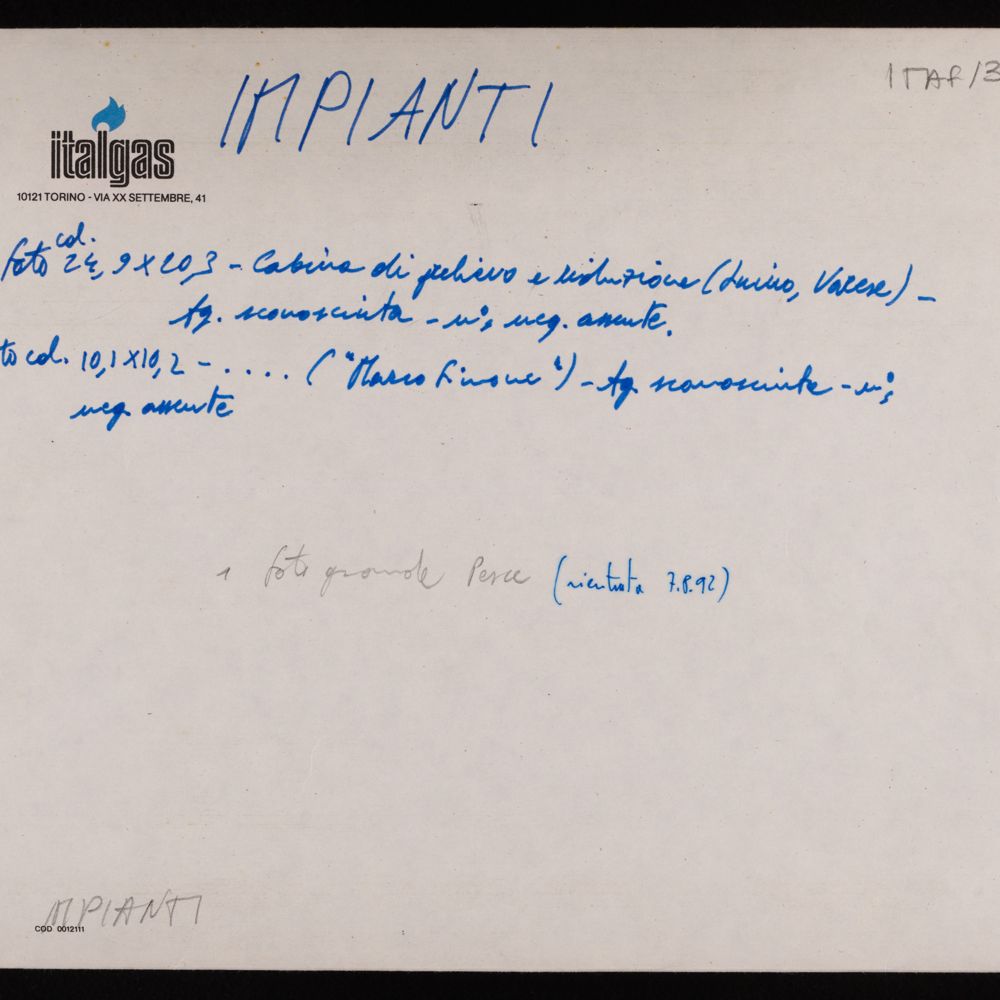 IMPIANTI
ITAF/3
italgas
10121 TORINO - VIA XX SETTEMBRE, 41
foto col. 24,9 x 20,3 - Cabina di prelievo e riduzione (Luino, Varese) -
Ag. sconosciuta - n° neg. assente.
to col. 10,1 x 10,2 - .... ("Marco Simone") - Ag. sconosciuta - n°
neg. assente
1 foto grande Pesce (rientrata 7.8.92)
IMPIANTI
COD 0012111